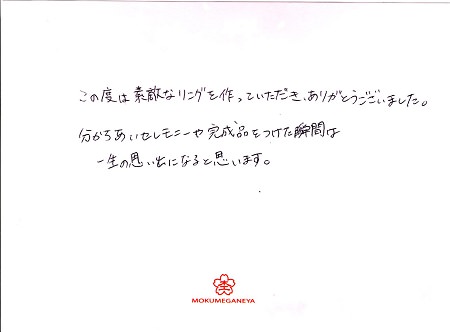 この度は素敵なリングを作っていただき、ありがとうございました。
分かちあいセレモニーや完成品をつけた瞬間は
一生の思い出になると思います。
MOKUMEGANEYA